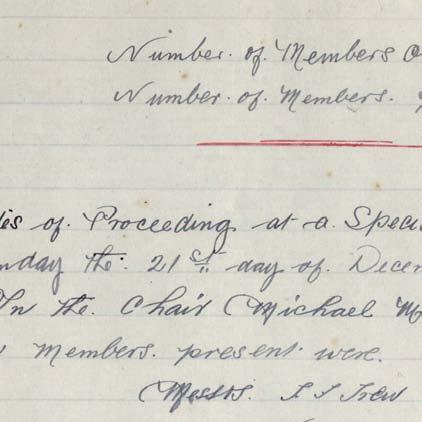 Number. of. Members
Number. of. Members.
of. Proceeding at a. Speci
nday the. 21st day of. Decem
In the. Chair Michael
Members. present were.
Messrs.